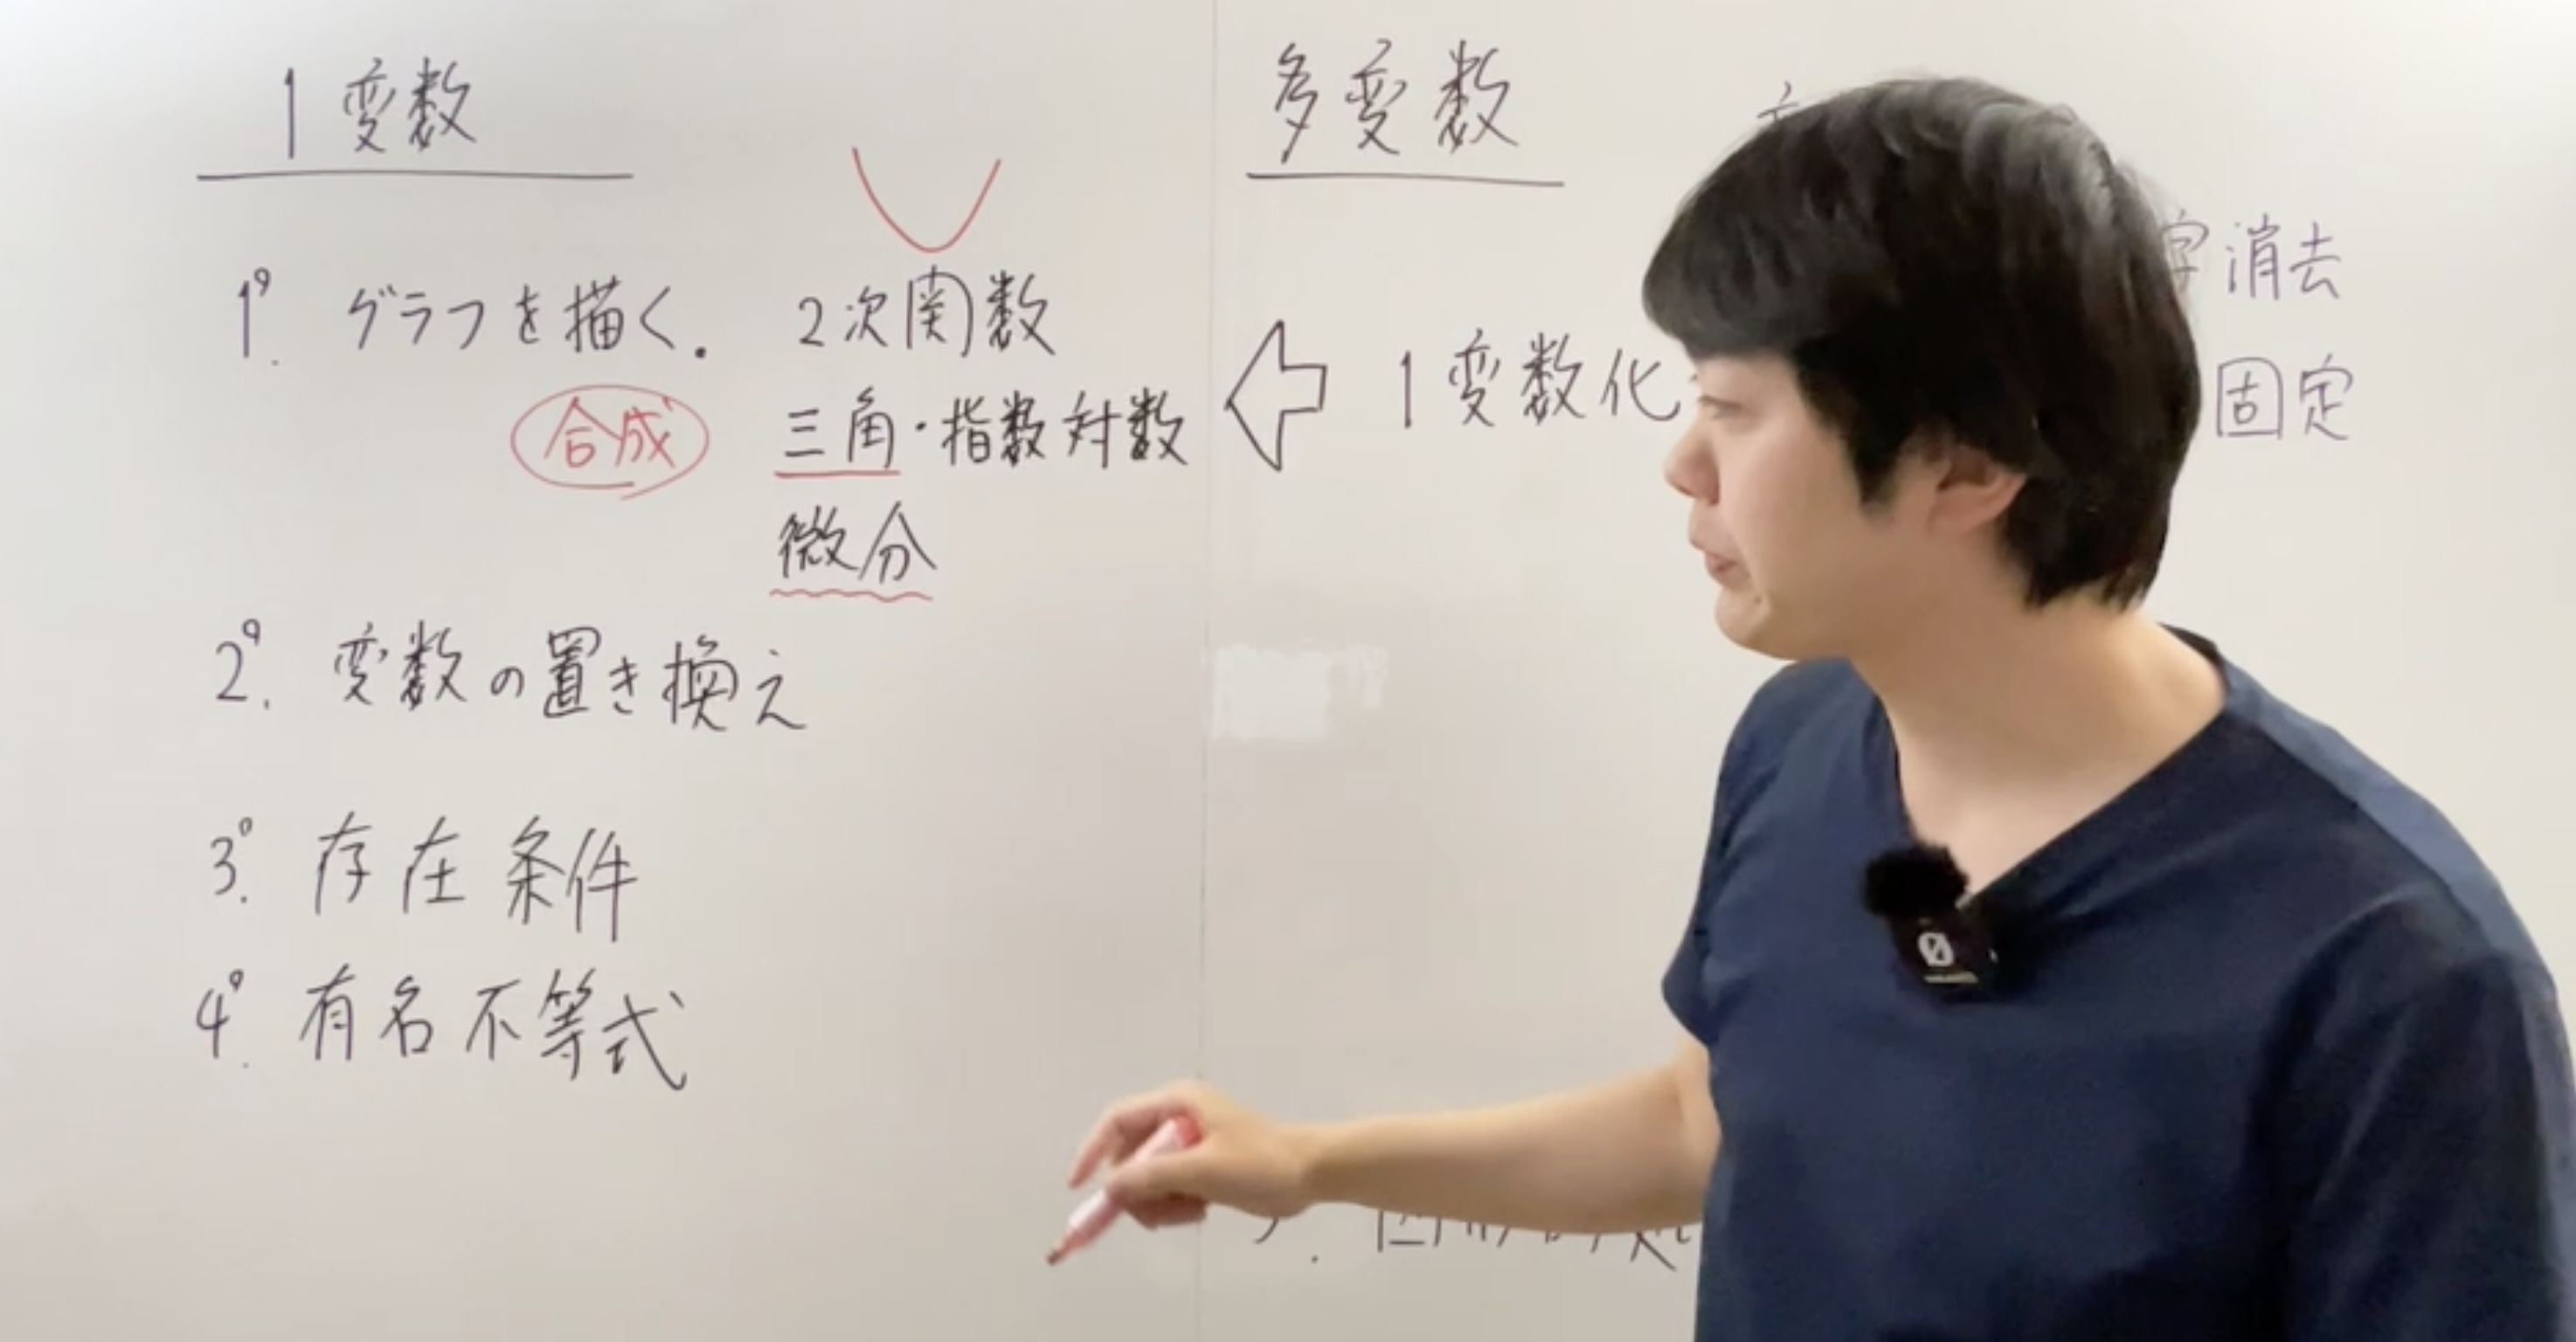 1変数
1° グラフを描く. 2次関数
合成 三角・指数対数
微分
2°. 変数の置き換え
3°. 存在条件
4°. 有名不等式
多変数
字消去
1変数化
固定